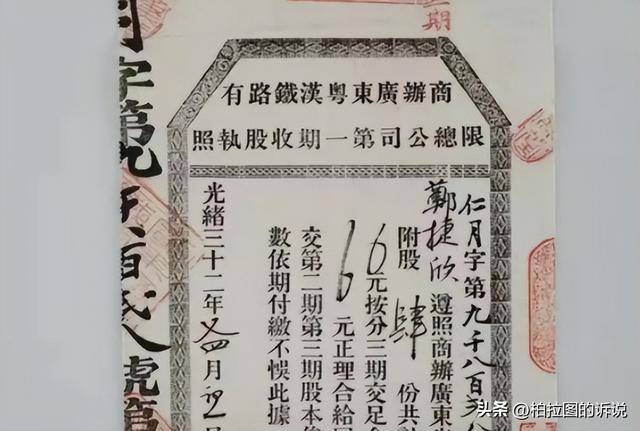 期
商辦廣東粵漢鐵路有
限總公司第一期收股執照
仁月字第九千八百
鄭捷欣遵照商辦廣東
附股肆份共
6元按分三期交足
6元正理合給
交第二期第三期股本
數依期付繳不悞此據
光緒三十二年又四月初
字第九千八百弍八號第
头条 @柏拉图的诉说